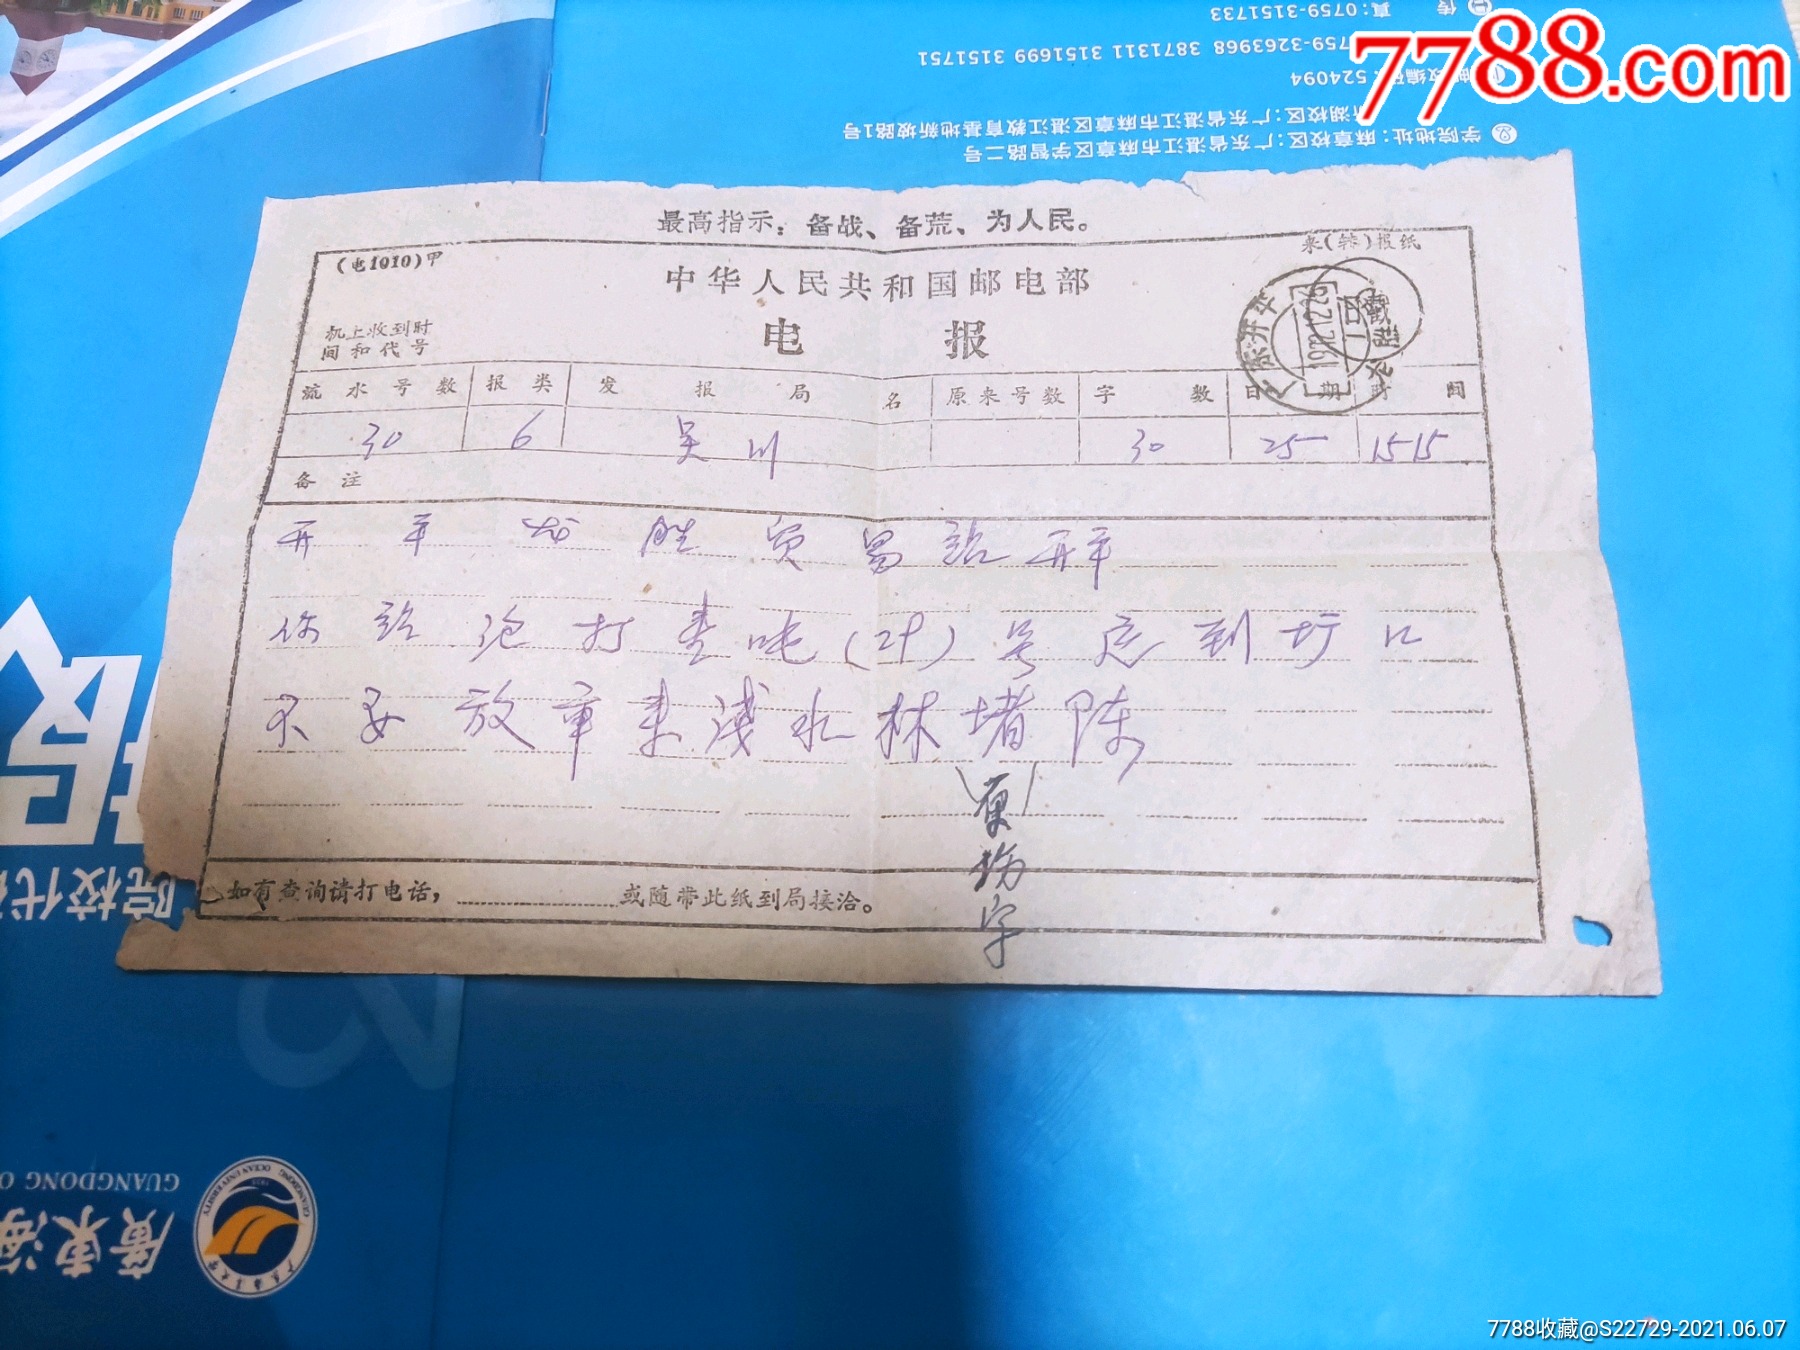 传 真:0759-3151733
759-3263968 38711311 3151699 3151751
524094
学院地址:麻章校区:广东省湛江市麻章区学智路二号
湖校区:广东省湛江市麻章区湛江教育基地新坡路1号
7788.com
最高指示:备战、备荒、为人民。
(电1010)甲
来(转)报纸
中华人民共和国邮电部
电报
机上收到时
间和代号
流水号数 报类 发报局名 原来号数 字数 日期 时间
30 6 吴川 30 25 1515
备注
开平 胜贸易站开平
你站 打 吨(21) 号 到圩口
不要放 来浅水林堵陈
字
如有查询请打电话, 或随带此纸到局接洽。
院校代
GUANGDONG O
廣東海
7788收藏@S22729-2021.06.07